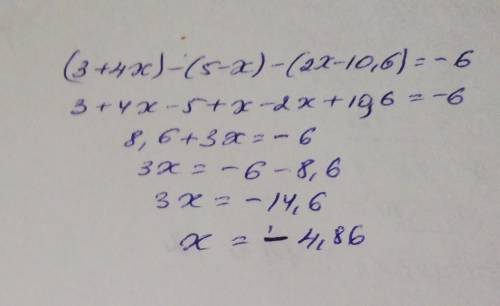 (3+4x)-(5-x)-(2x-10,6)=-6
3+4x-5+x-2x+10,6=-6
8,6+3x=-6
3x=-6-8,6
3x=-14,6
x=-4,86